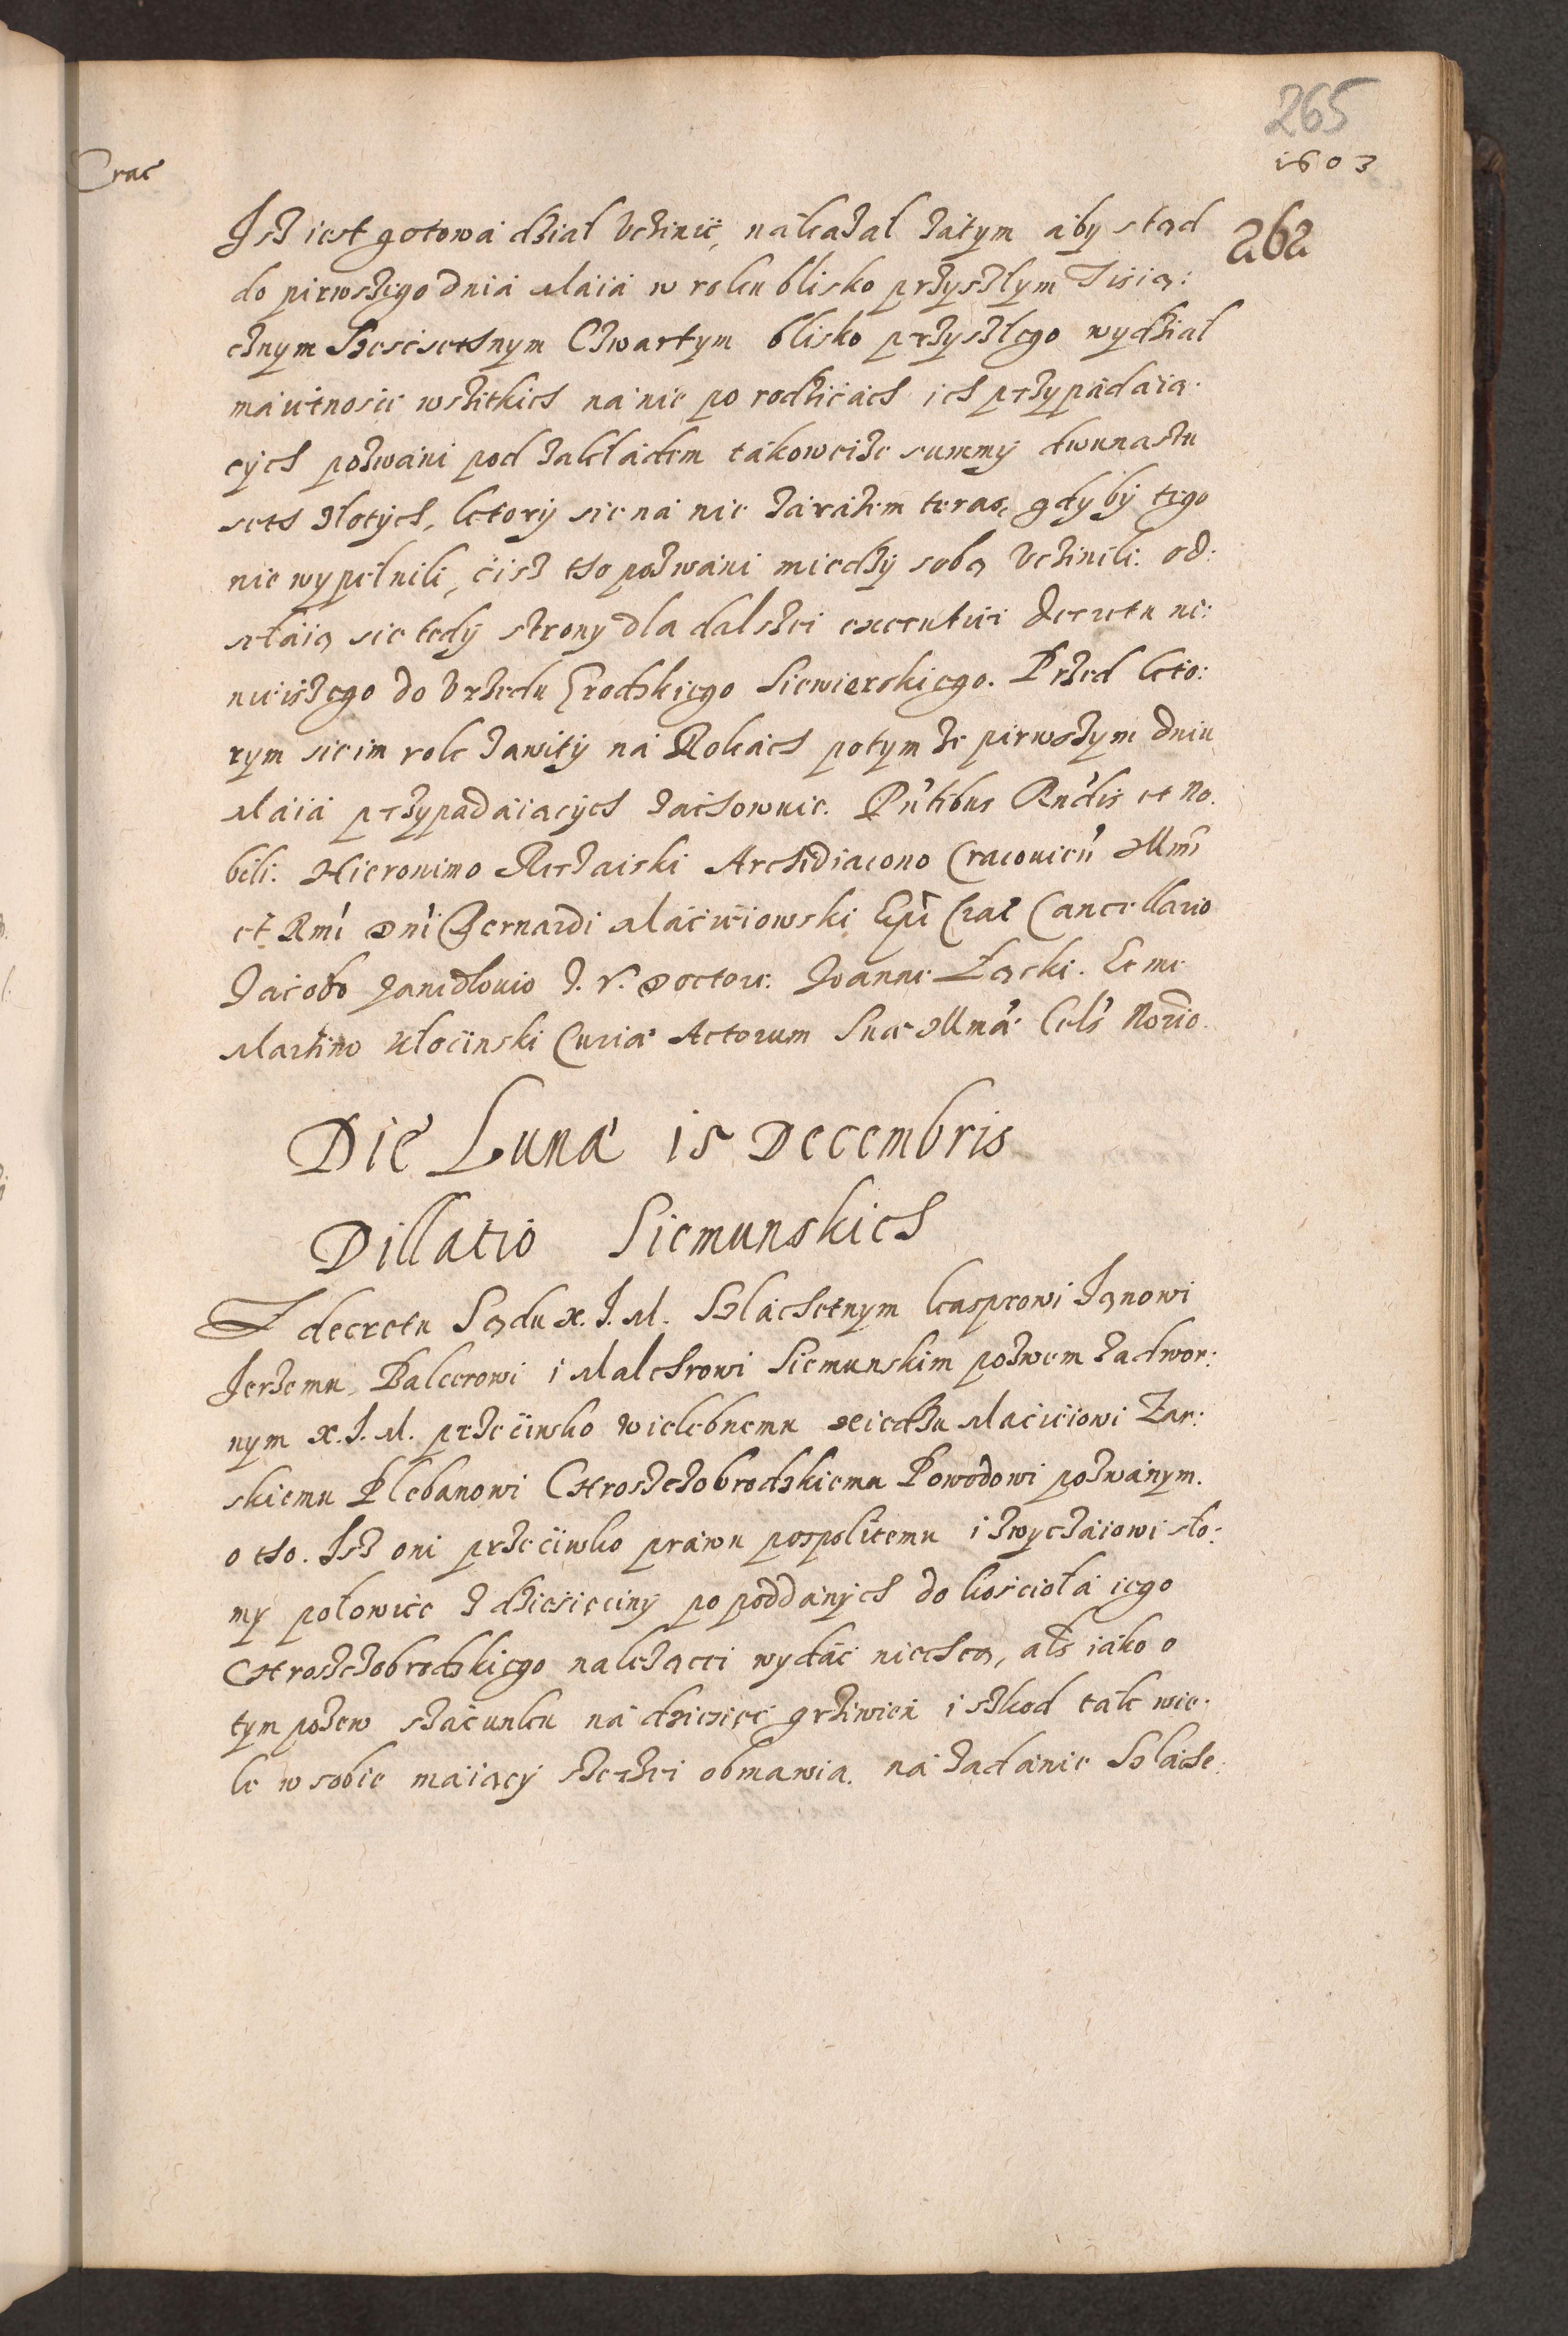 265
Crac
1603
262
Isz iest gotowa dział Uczinić, nakazał zatym aby stąd
do pirwszego dnia Maia w roku blisko przyszłym Tisią:
cznym Szescsethnym Czwartym blisko przyszłego wydział
maiętnosci wszitkich na nie po rodzicach ich przypadaią:
cych pozwani pod zakładem takoweize summy dwunastu
seth złotych, ktory sie na nie zarazem teraz gdy by tego
nie wypełnili, cisz tho pozwani miedzy sobą Uczinili. od:
sełaią sie tedy strony dla dalszei executiei decretu ni:
nieiszego do Urzedu Grodzkiego Siewierskiego. Przed kto:
rym sie im rok zawity na Rokach potym ze pirwszym dniu
Maia przypadaiących zachowuie. Pñtibus Rndis et No:
bili. Hieronimo Reczaiski Archidiacono Cracovień Illmi
et Rmi Dni Bernardi Macieiowski Epi Crac Cancellario
Jacobo Janidlovio J. V. Doctore. Joanne Łącki. Et me
Martino Kłociński Curiæ Actorum Suæ Illmæ Cels Notrio.
Die Lunæ 15 Decembris
Dillatio Siemunskich
Z decretu Sądu X. J. M. Szlachetnym Kasprowi Janowi
Jerzemu, Balcerowi i Malchrowi Siemunskim pozwem zadwor:
nym X. J. M. przeciwko wielebnemu Xiedzu Macieiowi Zar:
skiemu Plebanowi Chroszczobrodzkiemu Powodowi pozwanym.
o tho. Isz oni przeciwko prawu pospolitemu i zwyczaiowi sło:
my połowice z dziesięciny po poddanych do kościoła iego
Chroszczobrodzkiego nalezącei wydać niechcą, als iako o
tym pozew szacunku na dziesięć grziwien i szkod tak wie:
le w sobie maiący szerzei obmawia. na żadanie Szlache: